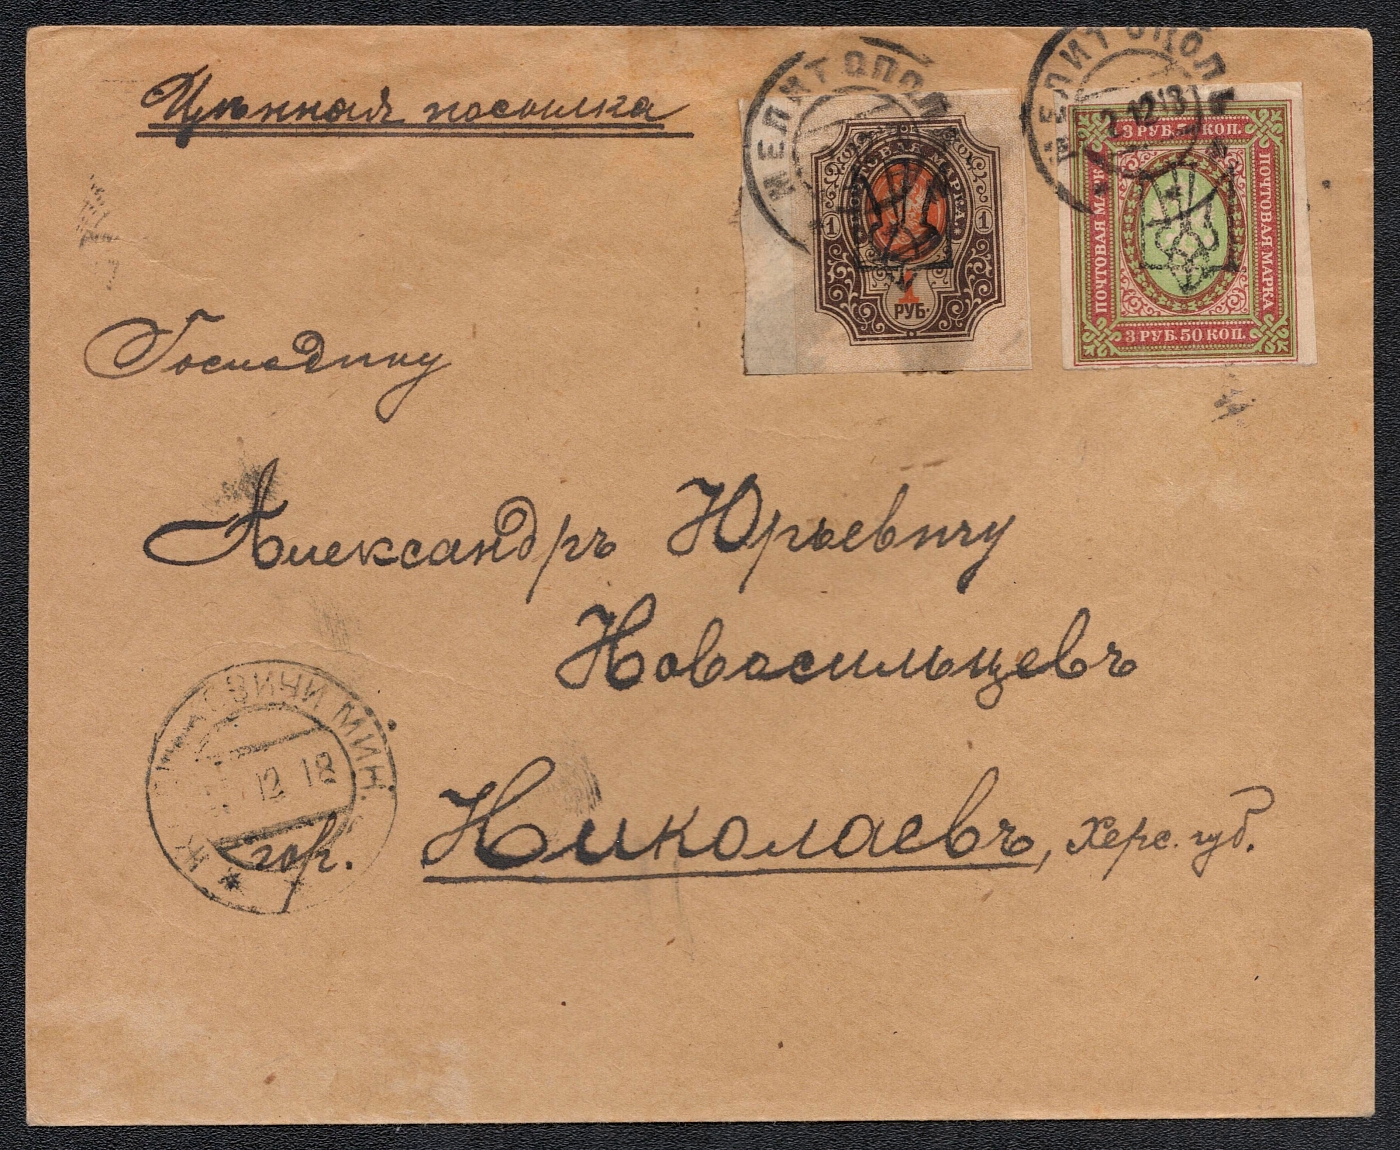 Цѣнная посылка
МЕЛИТОПОЛ
МЕЛИТОПОЛ
2 12 18
ПОЧТОВАЯ МАРКА
1 1
1
РУБ.
3 РУБ. 50 КОП.
ПОЧТОВАЯ МАРКА
ПОЧТОВАЯ МАРКА
3 РУБ. 50 КОП.
Господину
Александръ Юрьевичу
Новосильцевъ
МИН.
12 18
гор. Николаевъ, Херс. губ.